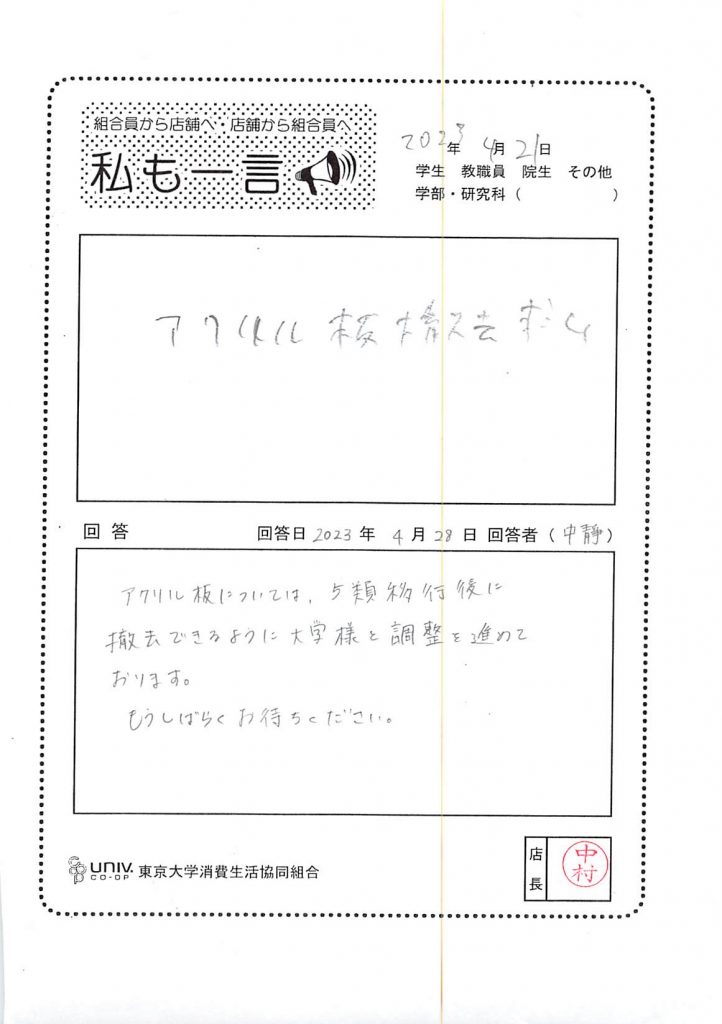 組合員から店舗へ・店舗から組合員へ
私も一言
2023年 4月 21日
学生 教職員 院生 その他
学部・研究科（ ）
アクリル板撤去求ム
回答 回答日 2023年 4月 28日 回答者（中静）
アクリル板については、5類移行後に
撤去できるように大学様と調整を進めて
おります。
もうしばらくお待ちください。
UNIV. CO-OP 東京大学消費生活協同組合
店長
中村